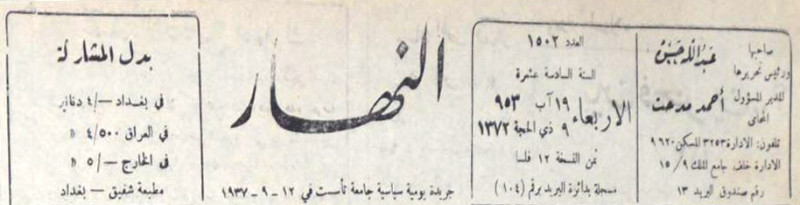 صاحبها
ورئيس تحريرها
عبدالله حسن
المدير المسؤول
أحمد مدحت
المحامي
تلفون: الادارة ٣٢٥٣ المسكن ٩٦٢٠
الادارة خلف جامع الملك ١٥/٩
رقم صندوق البريد ١٣
العدد ١٥٠٢
السنة السادسة عشرة
الاربعاء
١٩ آب ٩٥٣
٩ ذي الحجة ١٣٧٢
ثمن النسخة ١٢ فلسا
مسجلة بدائرة البريد برقم (١٠٤)
النهار
جريدة يومية سياسية جامعة تأسست في ١٢-٩-١٩٣٧
بدل المشاركة
في بغداد —/٤ دنانير
في العراق ٤/٥٠٠ «
في الخارج —/٥ «
مطبعة شفيق — بغداد